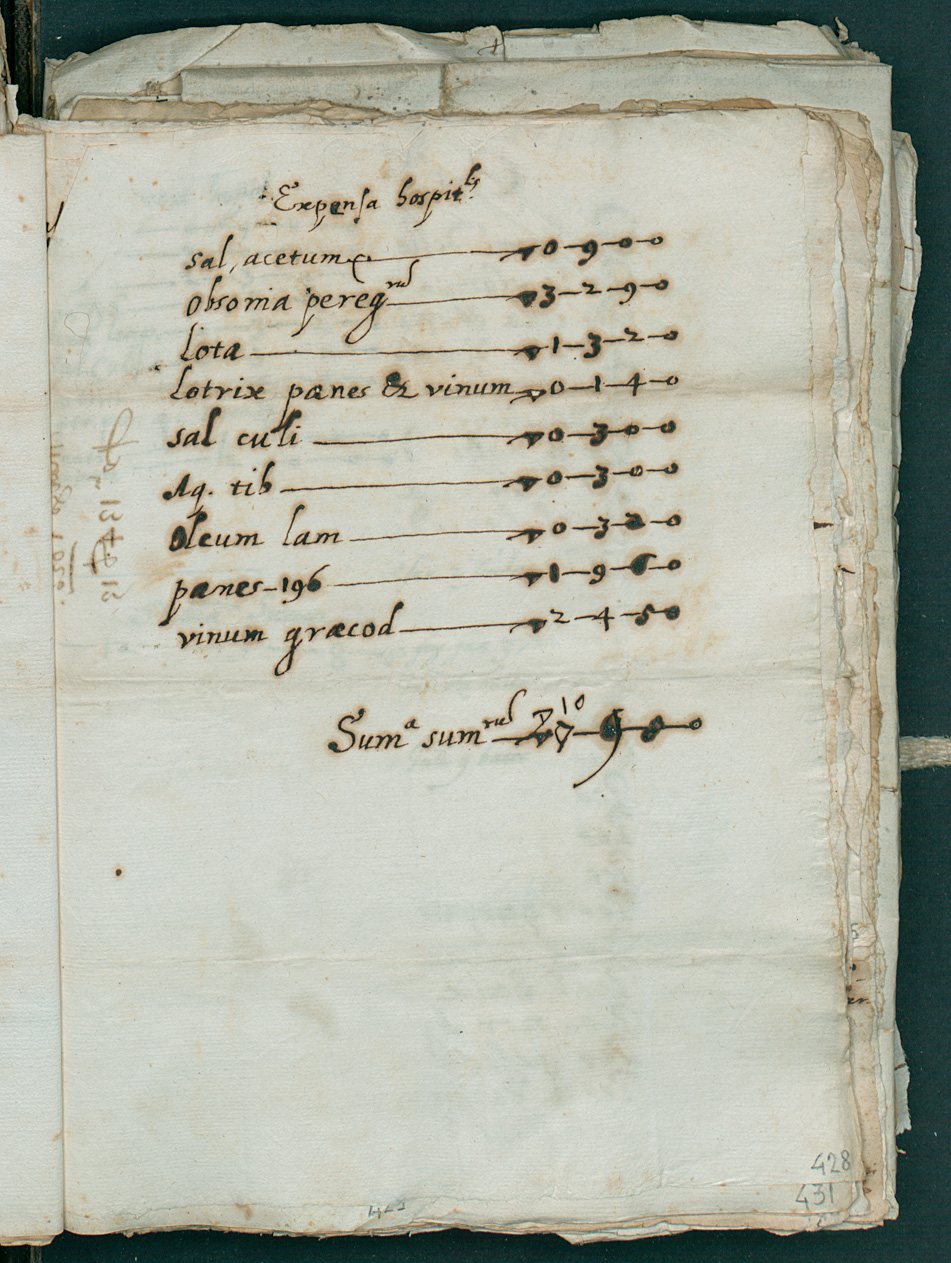 Expensa hospit.lis
sal, acetum &c. ▽ 0-9-0-0
Obsonia peregrrum ▽ 3-2-9-0
lota ▽ 1-3-2-0
lotrix panes & vinum ▽ 0-1-4-0
sal culi ▽ 0-3-0-0
Aq. tib ▽ 0-3-0-0
Oleum lam ▽ 0-3-2-0
panes-196 ▽ 1-9-6-0
vinum græcod ▽ 2-4-5-0
Suma sumrum ▽ 10
428
431